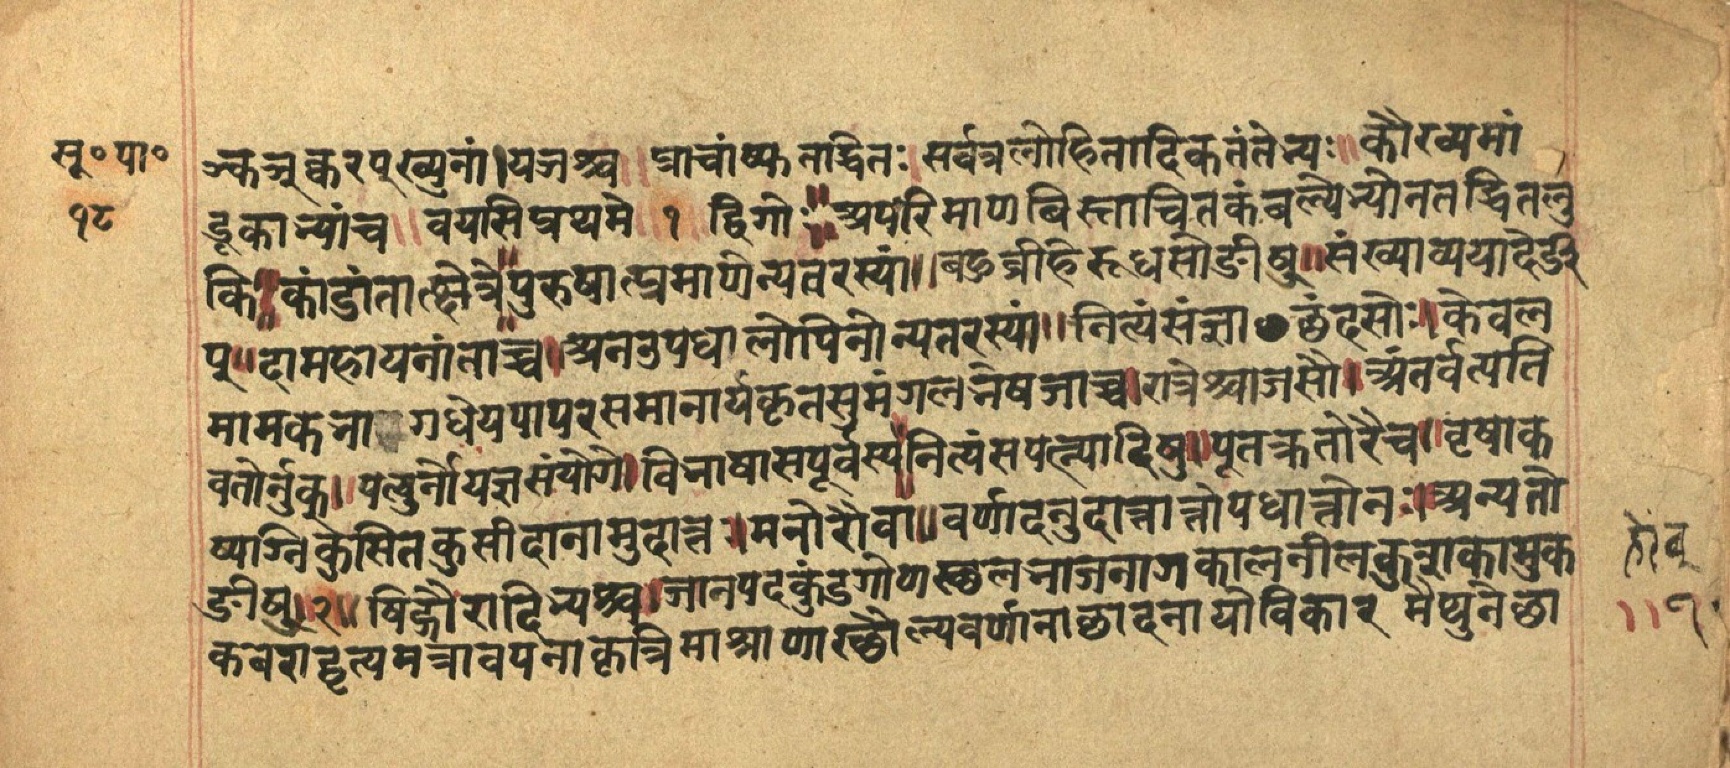 सू॰पा॰
१८
ञ्कञ्क्करप्ख्युनां।यञश्च॥प्राचांष्फतद्धितः॥सर्वत्रलोहितादिकतंतेभ्यः॥कौरव्यमां
डूकाभ्यांच॥वयसिप्रथमे१द्विगोः॥अपरिमाणबिस्ताचितकंबल्येभ्योनतद्धितलु
कि॥कांडांतात्क्षेत्रे॥पुरुषात्प्रमाणेन्यतरस्यां॥बहुव्रीहेरूधसोङीषु॥संख्याव्ययादेर्ङी
प्॥दामहायनांताच्च॥अनउपधालोपिनोन्यतरस्यां॥नित्यंसंज्ञाछंदसोः॥केवल
मामकभागधेयपापरसमानार्यकृतसुमंगलभेषजाच्च॥रात्रेश्चाजसौ॥अंतर्वत्पति
वतोर्नुक्॥पत्युर्नोयज्ञसंयोगे॥विभाषासपूर्वस्य॥नित्यंसपत्न्यादिषु॥पूतक्रतोरैच॥वृषाक
प्यग्निकुसितकुसीदानामुदात्तः॥मनोरौवा॥वर्णादनुदात्तात्तोपधात्तोनः॥अन्यतो
ङीषु॥२॥षिद्गौरादिभ्यश्च॥जानपदकुंडगोणस्थलभाजनागकालनीलकुशकामुक
कबराद्वृत्यमत्रावपनाकृत्रिमाश्राणास्थौल्यवर्णानाच्छादनायोविकारमैथुनेच्छा